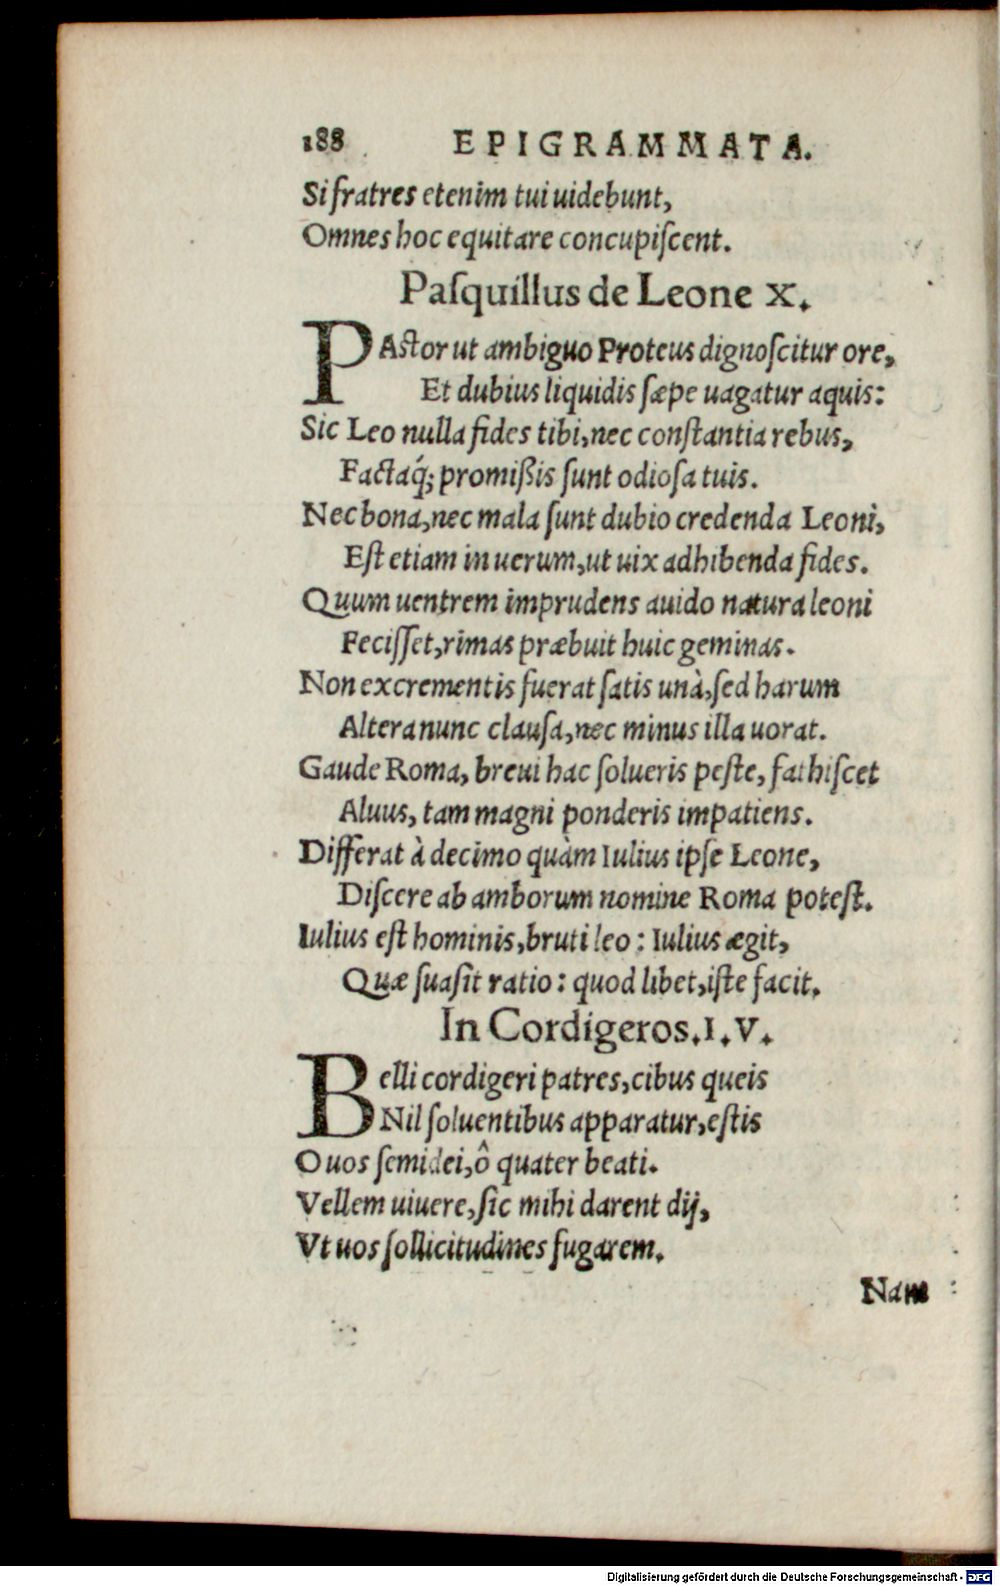 188 EPIGRAMMATA.
Si fratres etenim tui uidebunt,
Omnes hoc equitare concupiſcent.
Paſquillus de Leone X.
PAſtor ut ambiguo Proteus dignoſcitur ore,
Et dubius liquidis ſæpe uagatur aquis:
Sic Leo nulla fides tibi, nec conſtantia rebus,
Factaq́; promißis ſunt odioſa tuis.
Nec bona, nec mala ſunt dubio credenda Leoni,
Eſt etiam in uerum, ut uix adhibenda fides.
Quum uentrem imprudens auido natura leoni
Feciſſet, rimas præbuit huic geminas.
Non excrementis fuerat ſatis unà, ſed harum
Altera nunc clauſa, nec minus illa uorat.
Gaude Roma, breui hac ſolueris peſte, fathiſcet
Aluus, tam magni ponderis impatiens.
Differat à decimo quàm Iulius ipſe Leone,
Diſcere ab amborum nomine Roma poteſt.
Iulius eſt hominis, bruti leo: Iulius ægit,
Quæ ſuaſit ratio: quod libet, iſte facit.
In Cordigeros. I. V.
Belli cordigeri patres, cibus queis
Nil ſoluentibus apparatur, eſtis
O uos ſemidei, ô quater beati.
Vellem uiuere, ſic mihi darent dij,
Vt uos ſollicitudines fugarem.
Nam
Digitalisierung gefördert durch die Deutsche Forschungsgemeinschaft - DFG